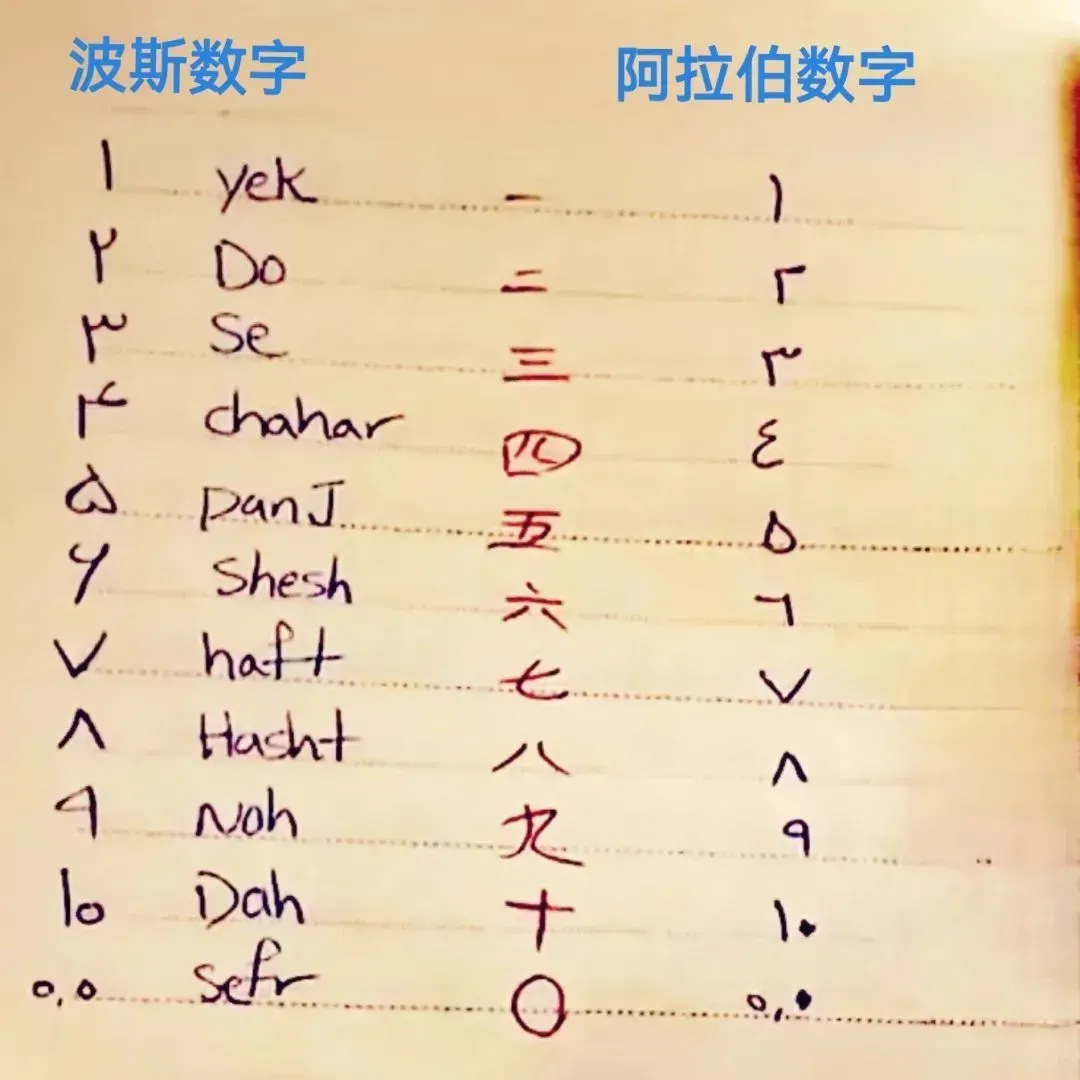 波斯数字 阿拉伯数字
۱ yek 一 ١
۲ Do 二 ٢
۳ Se 三 ٣
۴ chahar 四 ٤
۵ PanJ 五 ٥
۶ Shesh 六 ٦
۷ haft 七 ٧
۸ Hasht 八 ٨
۹ Noh 九 ٩
۱۰ Dah 十 ١٠
۰,۰ sefr 〇 ٠,٠